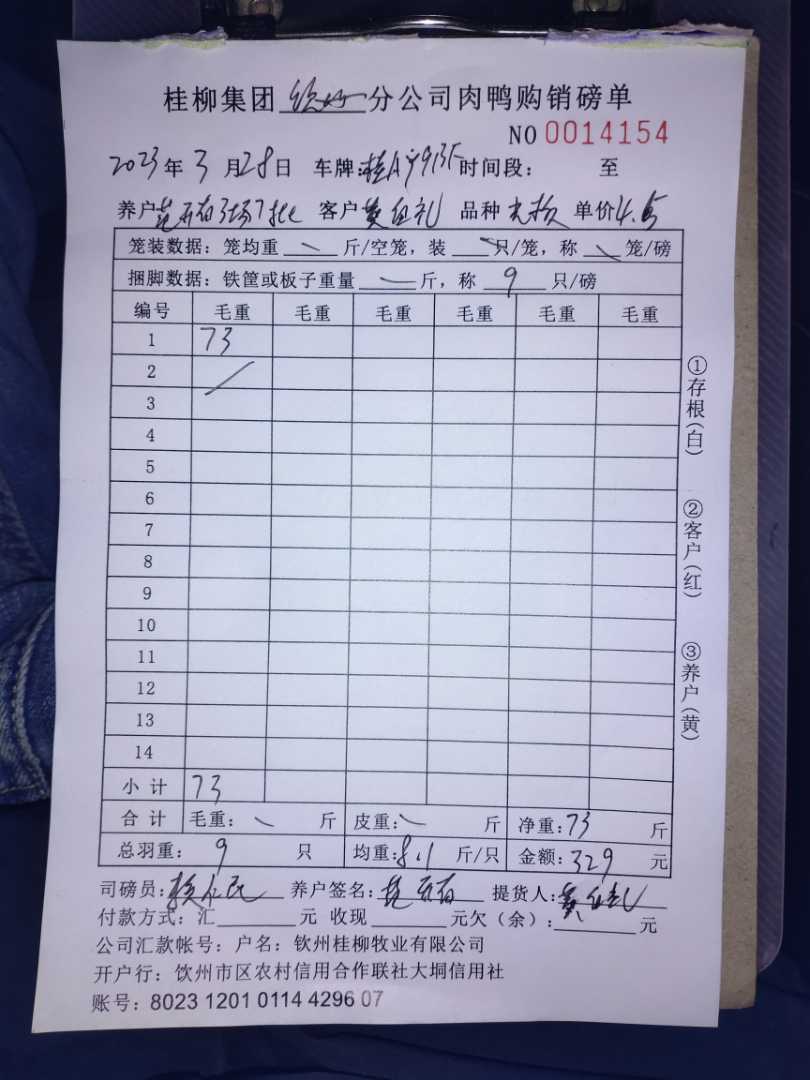 桂柳集团 钦州 分公司肉鸭购销磅单
NO 0014154
2023年3月28日 车牌:桂A 时间段: 至
养户 3场7批 客户 黄 礼 品种 单价4.5
笼装数据:笼均重 斤/空笼,装 只/笼,称 笼/磅
捆脚数据:铁筐或板子重量 斤,称 9 只/磅
编号 毛重 毛重 毛重 毛重 毛重 毛重
1 73
2
3
4
5
6
7
8
9
10
11
12
13
14
小计 73
合计 毛重: 斤 皮重: 斤 净重:73 斤
总羽重: 9 只 均重:8.1 斤/只 金额:329 元
司磅员: 养户签名: 提货人:黄 礼
付款方式:汇 元 收现 元欠(余): 元
公司汇款帐号:户名:钦州桂柳牧业有限公司
开户行:饮州市区农村信用合作联社大垌信用社
账号:8023 1201 0114 4296 07
①存根(白)
②客户(红)
③养户(黄)